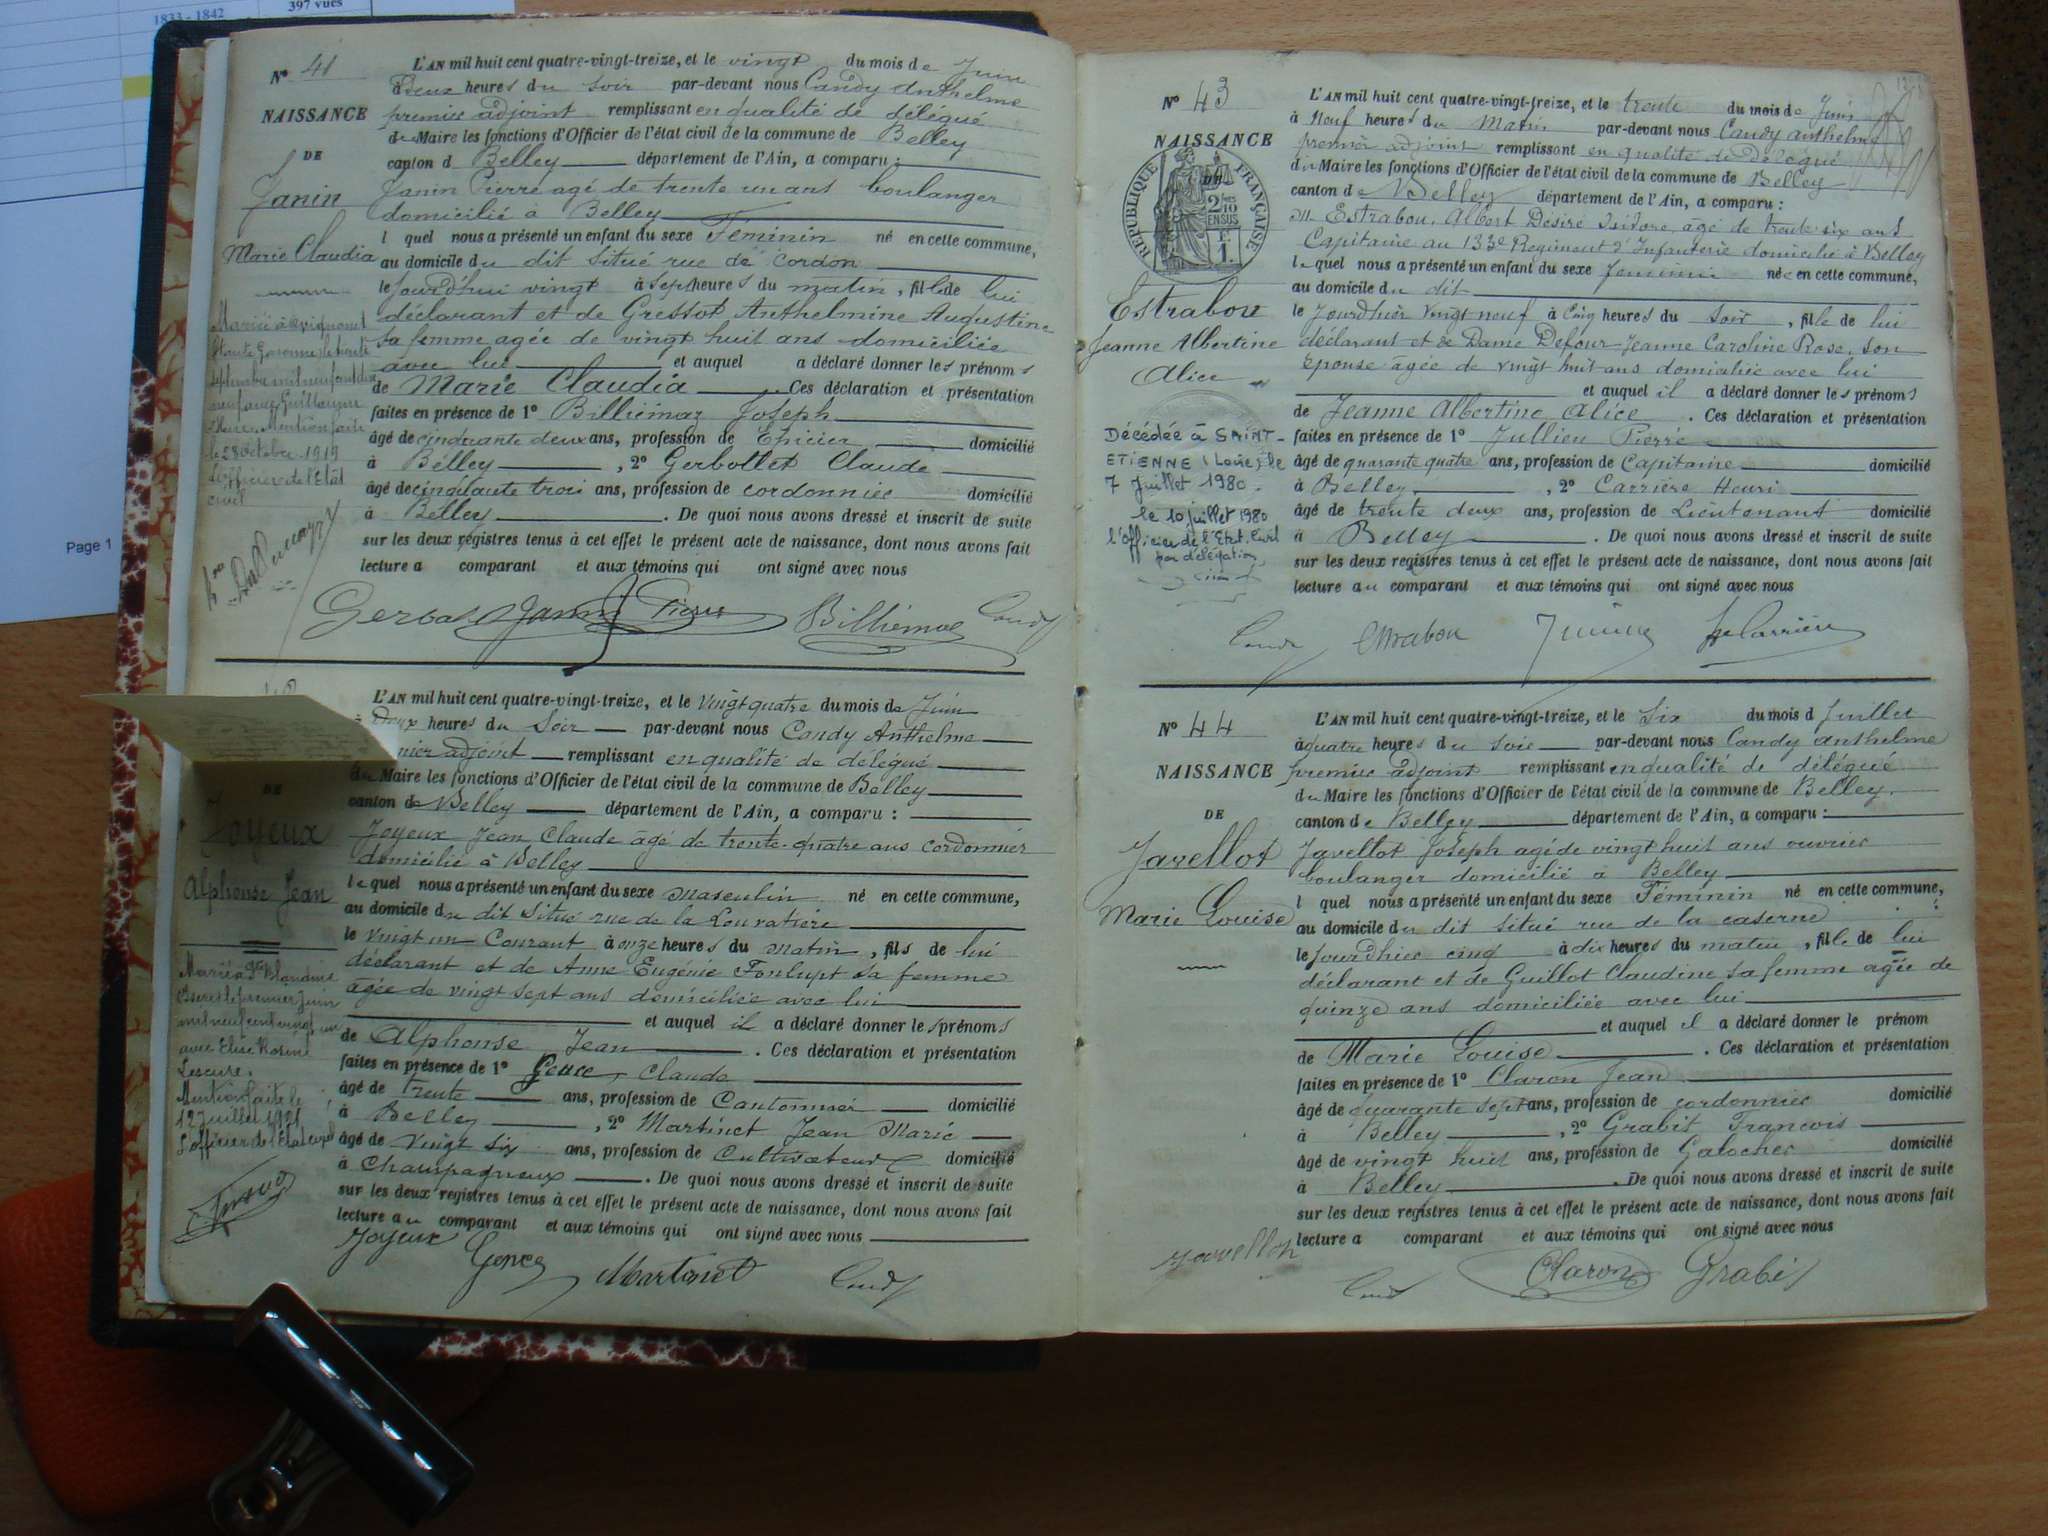 1833 - 1842
397 vues
Page 1
N° 41
NAISSANCE
DE
Janin
Marie Claudia
Mariée à Avignonet
Haute Garonne, le trente
septembre mil neuf cent dix
neuf avec Guillaume
Mention faite
le 28 octobre 1919
L'officier de l'Etat
civil
L'AN mil huit cent quatre-vingt-treize, et le vingt du mois de Juin
à Deux heures du soir par-devant nous Candy Anthelme
premier adjoint remplissant en qualité de délégué
du Maire les fonctions d'Officier de l'état civil de la commune de Belley
canton d Belley département de l'Ain, a comparu :
Janin Pierre agé de trente un ans boulanger
domicilié à Belley
l quel nous a présenté un enfant du sexe Féminin né en cette commune,
au domicile du dit situé rue de Cordon
le Jourd'hui vingt à sept heures du matin, fille de lui
déclarant et de Gressot Anthelmine Augustine
sa femme agée de vingt huit ans domiciliée
avec lui et auquel a déclaré donner les prénoms
de Marie Claudia . Ces déclaration et présentation
faites en présence de 1° Billiémaz Joseph
âgé de cinquante deux ans, profession de Epicier domicilié
à Belley , 2° Gerbollet Claude
âgé de cinquante trois ans, profession de cordonnier domicilié
à Belley . De quoi nous avons dressé et inscrit de suite
sur les deux registres tenus à cet effet le présent acte de naissance, dont nous avons fait
lecture a comparant et aux témoins qui ont signé avec nous
Janin Pierre Billiémaz Candy
DE
Joyeux
Alphonse Jean
Marié à Ste Blandine
Isère le premier Juin
mil neuf cent vingt un
avec Elise Rosine
Lescure.
Mention faite le
12 Juillet 1921
L'officier de l'Etat civil
L'AN mil huit cent quatre-vingt-treize, et le Vingt quatre du mois de Juin
à Deux heures du Soir par-devant nous Candy Anthelme
premier adjoint remplissant en qualité de délégué
du Maire les fonctions d'Officier de l'état civil de la commune de Belley
canton de Belley département de l'Ain, a comparu :
Joyeux Jean Claude âgé de trente-quatre ans cordonnier
domicilié à Belley
le quel nous a présenté un enfant du sexe masculin né en cette commune,
au domicile du dit Situé rue de la Louvatière
le Vingt un Courant à onze heures du matin, fils de lui
déclarant et de Anne Eugénie Fonlupt sa femme
agée de vingt sept ans domiciliée avec lui
et auquel il a déclaré donner les prénoms
de Alphonse Jean . Ces déclaration et présentation
faites en présence de 1° Gence Claude
âgé de trente ans, profession de Cantonnier domicilié
à Belley , 2° Martinet Jean Marie
âgé de Vingt six ans, profession de Cultivateur domicilié
à Champagneux . De quoi nous avons dressé et inscrit de suite
sur les deux registres tenus à cet effet le présent acte de naissance, dont nous avons fait
lecture au comparant et aux témoins qui ont signé avec nous
Joyeux Gence Martinet Candy
N° 43
NAISSANCE
DE
REPUBLIQUE FRANÇAISE
2/10
EN SUS
Estrabou
Jeanne Albertine
Alice
Décédée à SAINT-
ETIENNE (Loire) le
7 Juillet 1980.
le 10 juillet 1980
l'officier de l'Etat Civil
par délégation,
L'AN mil huit cent quatre-vingt-treize, et le trente du mois de Juin
à Neuf heures du Matin par-devant nous Candy Anthelme
premier adjoint remplissant en qualité de délégué
du Maire les fonctions d'Officier de l'état civil de la commune de Belley
canton de Belley département de l'Ain, a comparu :
M. Estrabou, Albert Désiré Isidore, âgé de trente six ans
Capitaine au 133e Régiment d'Infanterie domicilié à Belley
le quel nous a présenté un enfant du sexe féminin née en cette commune,
au domicile du dit
le Jourd'hier vingt neuf à Cinq heures du Soir, fille de lui
déclarant et de Dame Defour Jeanne Caroline Rose, son
épouse âgée de vingt huit ans domiciliée avec lui
et auquel il a déclaré donner les prénoms
de Jeanne Albertine Alice . Ces déclaration et présentation
faites en présence de 1° Jullien Pierre
âgé de quarante quatre ans, profession de Capitaine domicilié
à Belley , 2° Carrière Henri
âgé de trente deux ans, profession de Lieutenant domicilié
à Belley . De quoi nous avons dressé et inscrit de suite
sur les deux registres tenus à cet effet le présent acte de naissance, dont nous avons fait
lecture au comparant et aux témoins qui ont signé avec nous
Candy Estrabou Carrière
N° 44
NAISSANCE
DE
Javellot
Marie Louise
L'AN mil huit cent quatre-vingt-treize, et le Six du mois d Juillet
à quatre heures du soir par-devant nous Candy Anthelme
premier adjoint remplissant en qualité de délégué
du Maire les fonctions d'Officier de l'état civil de la commune de Belley.
canton de Belley département de l'Ain, a comparu :
Javellot Joseph agé de vingt huit ans ouvrier
boulanger domicilié à Belley
l quel nous a présenté un enfant du sexe Féminin né en cette commune,
au domicile du dit situé rue de la caserne
le Jourd'hier cinq à dix heures du matin, fille de lui
déclarant et de Guillot Claudine sa femme agée de
quinze ans domiciliée avec lui
et auquel il a déclaré donner le prénom
de Marie Louise . Ces déclaration et présentation
faites en présence de 1° Claron Jean
âgé de quarante sept ans, profession de cordonnier domicilié
à Belley , 2° Grabit Francois
âgé de vingt huit ans, profession de Galocher domicilié
à Belley . De quoi nous avons dressé et inscrit de suite
sur les deux registres tenus à cet effet le présent acte de naissance, dont nous avons fait
lecture a comparant et aux témoins qui ont signé avec nous
Javellot Candy Claron Grabit